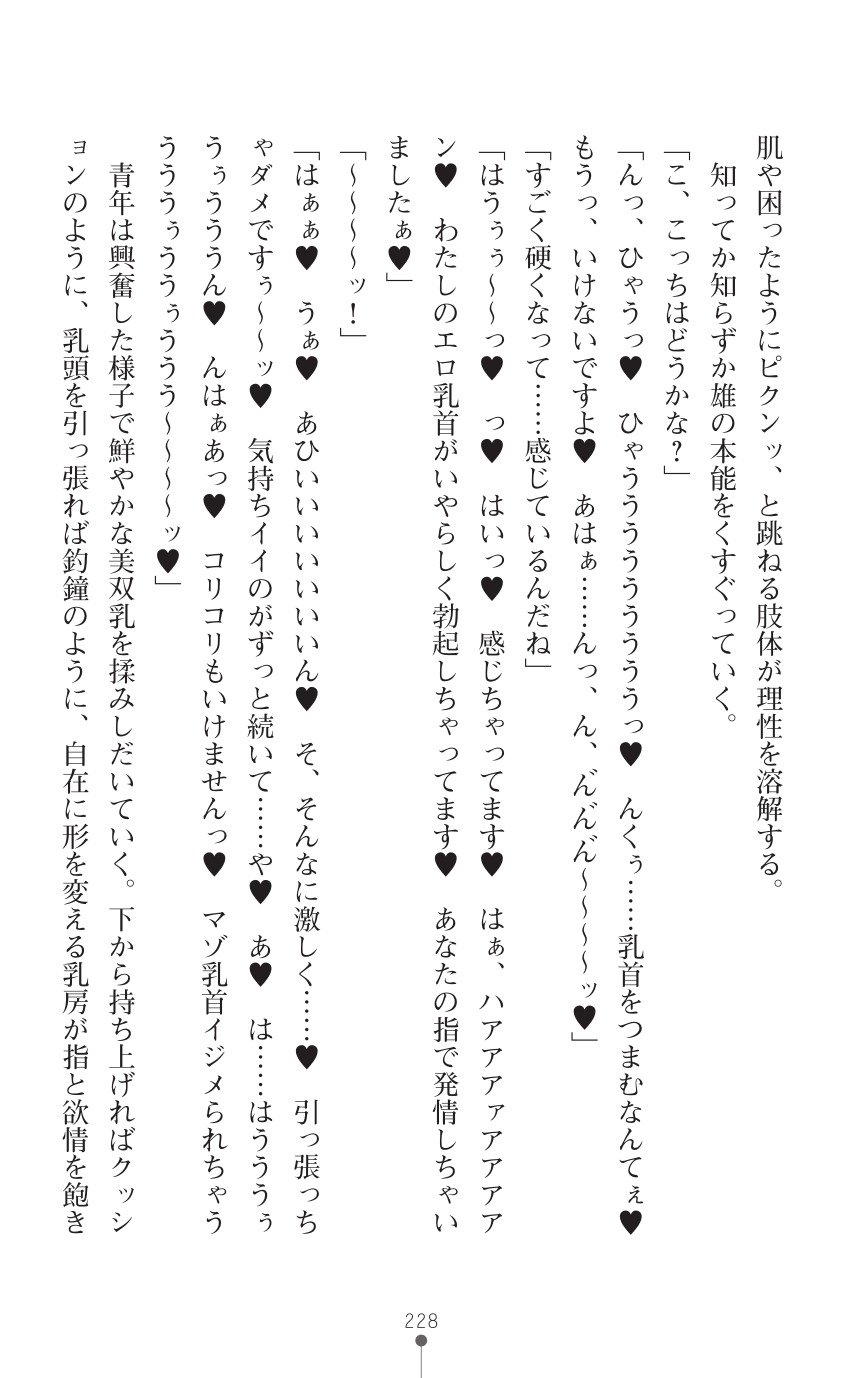 肌や困ったようにピクンッ、と跳ねる肢体が理性を溶解する。
　知ってか知らずか雄の本能をくすぐっていく。
「こ、こっちはどうかな？」
「んっ、ひゃうっ♥　ひゃうううううううううっ♥　んくぅ……乳首をつまむなんてぇ♥
もうっ、いけないですよ♥　あはぁ……んっ、ん、ん゛ん゛ん゛～～～～ッ♥」
「すごく硬くなって……感じているんだね」
「はうぅぅ～～っ♥　っ♥　はいっ♥　感じちゃってます♥　はぁ、ハアアアァアアアア
ン♥　わたしのエロ乳首がいやらしく勃起しちゃってます♥　あなたの指で発情しちゃい
ましたぁ♥」
「～～～～ッ！」
「はぁぁ♥　うぁ♥　あひいいいいいいいん♥　そ、そんなに激しく……♥　引っ張っち
ゃダメですぅ～～ッ♥　気持ちイイのがずっと続いて……や♥　あ♥　は……はうううぅ
うぅうううん♥　んはぁあっ♥　コリコリもいけませんっ♥　マゾ乳首イジメられちゃう
うううぅううぅううう～～～～ッ♥」
　青年は興奮した様子で鮮やかな美双乳を揉みしだいていく。下から持ち上げればクッシ
ョンのように、乳頭を引っ張れば釣鐘のように、自在に形を変える乳房が指と欲情を飽き
228